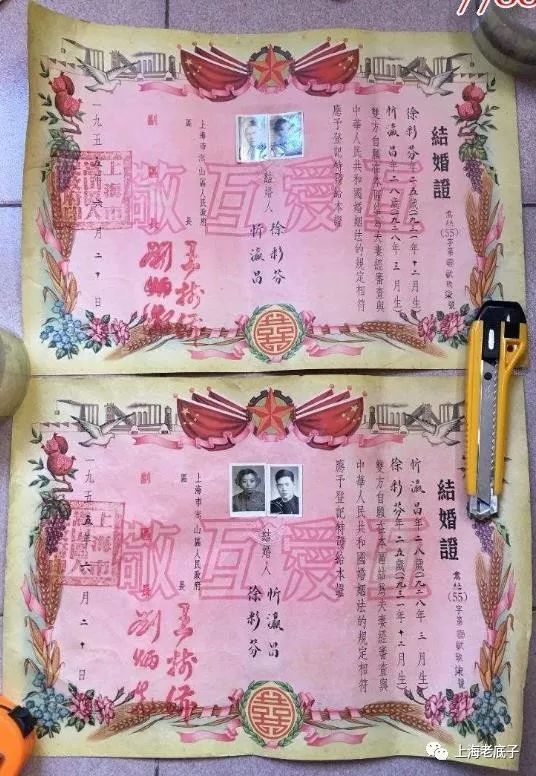 結婚證
(55)字第號
徐彩芬年二五歲(一九三一年十二月生)
忻瀛昌年二八歲(一九二八年三月生)
雙方自願在本區結為夫妻經審查與
中華人民共和國婚姻法的規定相符
應予登記特發給本證
互愛互敬
結婚人
徐彩芬
忻瀛昌
上海市嵩山區人民政府
區長
副區長
劉炳
一九五五年六月二十日
囍
結婚證
(55)字第號
忻瀛昌年二八歲(一九二八年三月生)
徐彩芬年二五歲(一九三一年十二月生)
雙方自願在本區結為夫妻經審查與
中華人民共和國婚姻法的規定相符
應予登記特發給本證
互愛互敬
結婚人
忻瀛昌
徐彩芬
上海市嵩山區人民政府
區長
副區長
劉炳
一九五五年六月二十日
囍
上海老底子